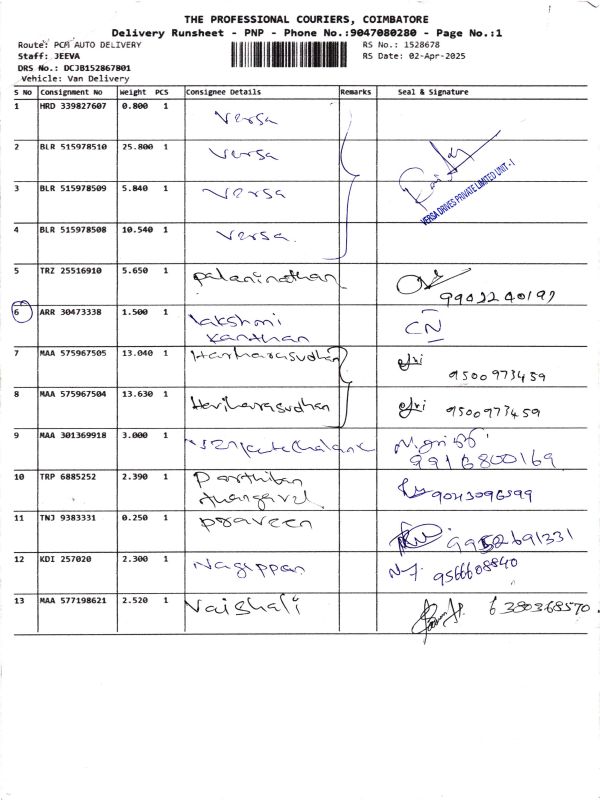 THE PROFESSIONAL COURIERS, COIMBATORE
Delivery Runsheet - PNP - Phone No.:9047080280 - Page No.:1
Route: PCM AUTO DELIVERY
RS No.: 1528678
Staff: JEEVA
RS Date: 02-Apr-2025
DRS No.: DCJB152867801
Vehicle: Van Delivery
S No Consignment No Weight PCS Consignee Details Remarks Seal & Signature
1 HRD 339827607 0.800 1 Versa
2 BLR 515978510 25.800 1 Versa
VERSA DRIVES PRIVATE LIMITED UNIT - I
3 BLR 515978509 5.840 1 Versa
4 BLR 515978508 10.540 1 Versa.
5 TRZ 25516910 5.650 1 Palaninathan
6 ARR 30473338 1.500 1 Lakshmi CN
Kanthan
7 MAA 575967505 13.040 1 Hariharasudhan Sri
9500973459
8 MAA 575967504 13.630 1 Hariharasudhan Sri 9500973459
9 MAA 301369918 3.000 1
9916800169
10 TRP 6885252 2.390 1 Parthiban
Thangavel 9043096599
11 TNJ 9383331 0.250 1 Praveen 9952691331
12 KDI 257020 2.300 1 Nagappan 9566608840
13 MAA 577198621 2.520 1 Vaishali 6380368570